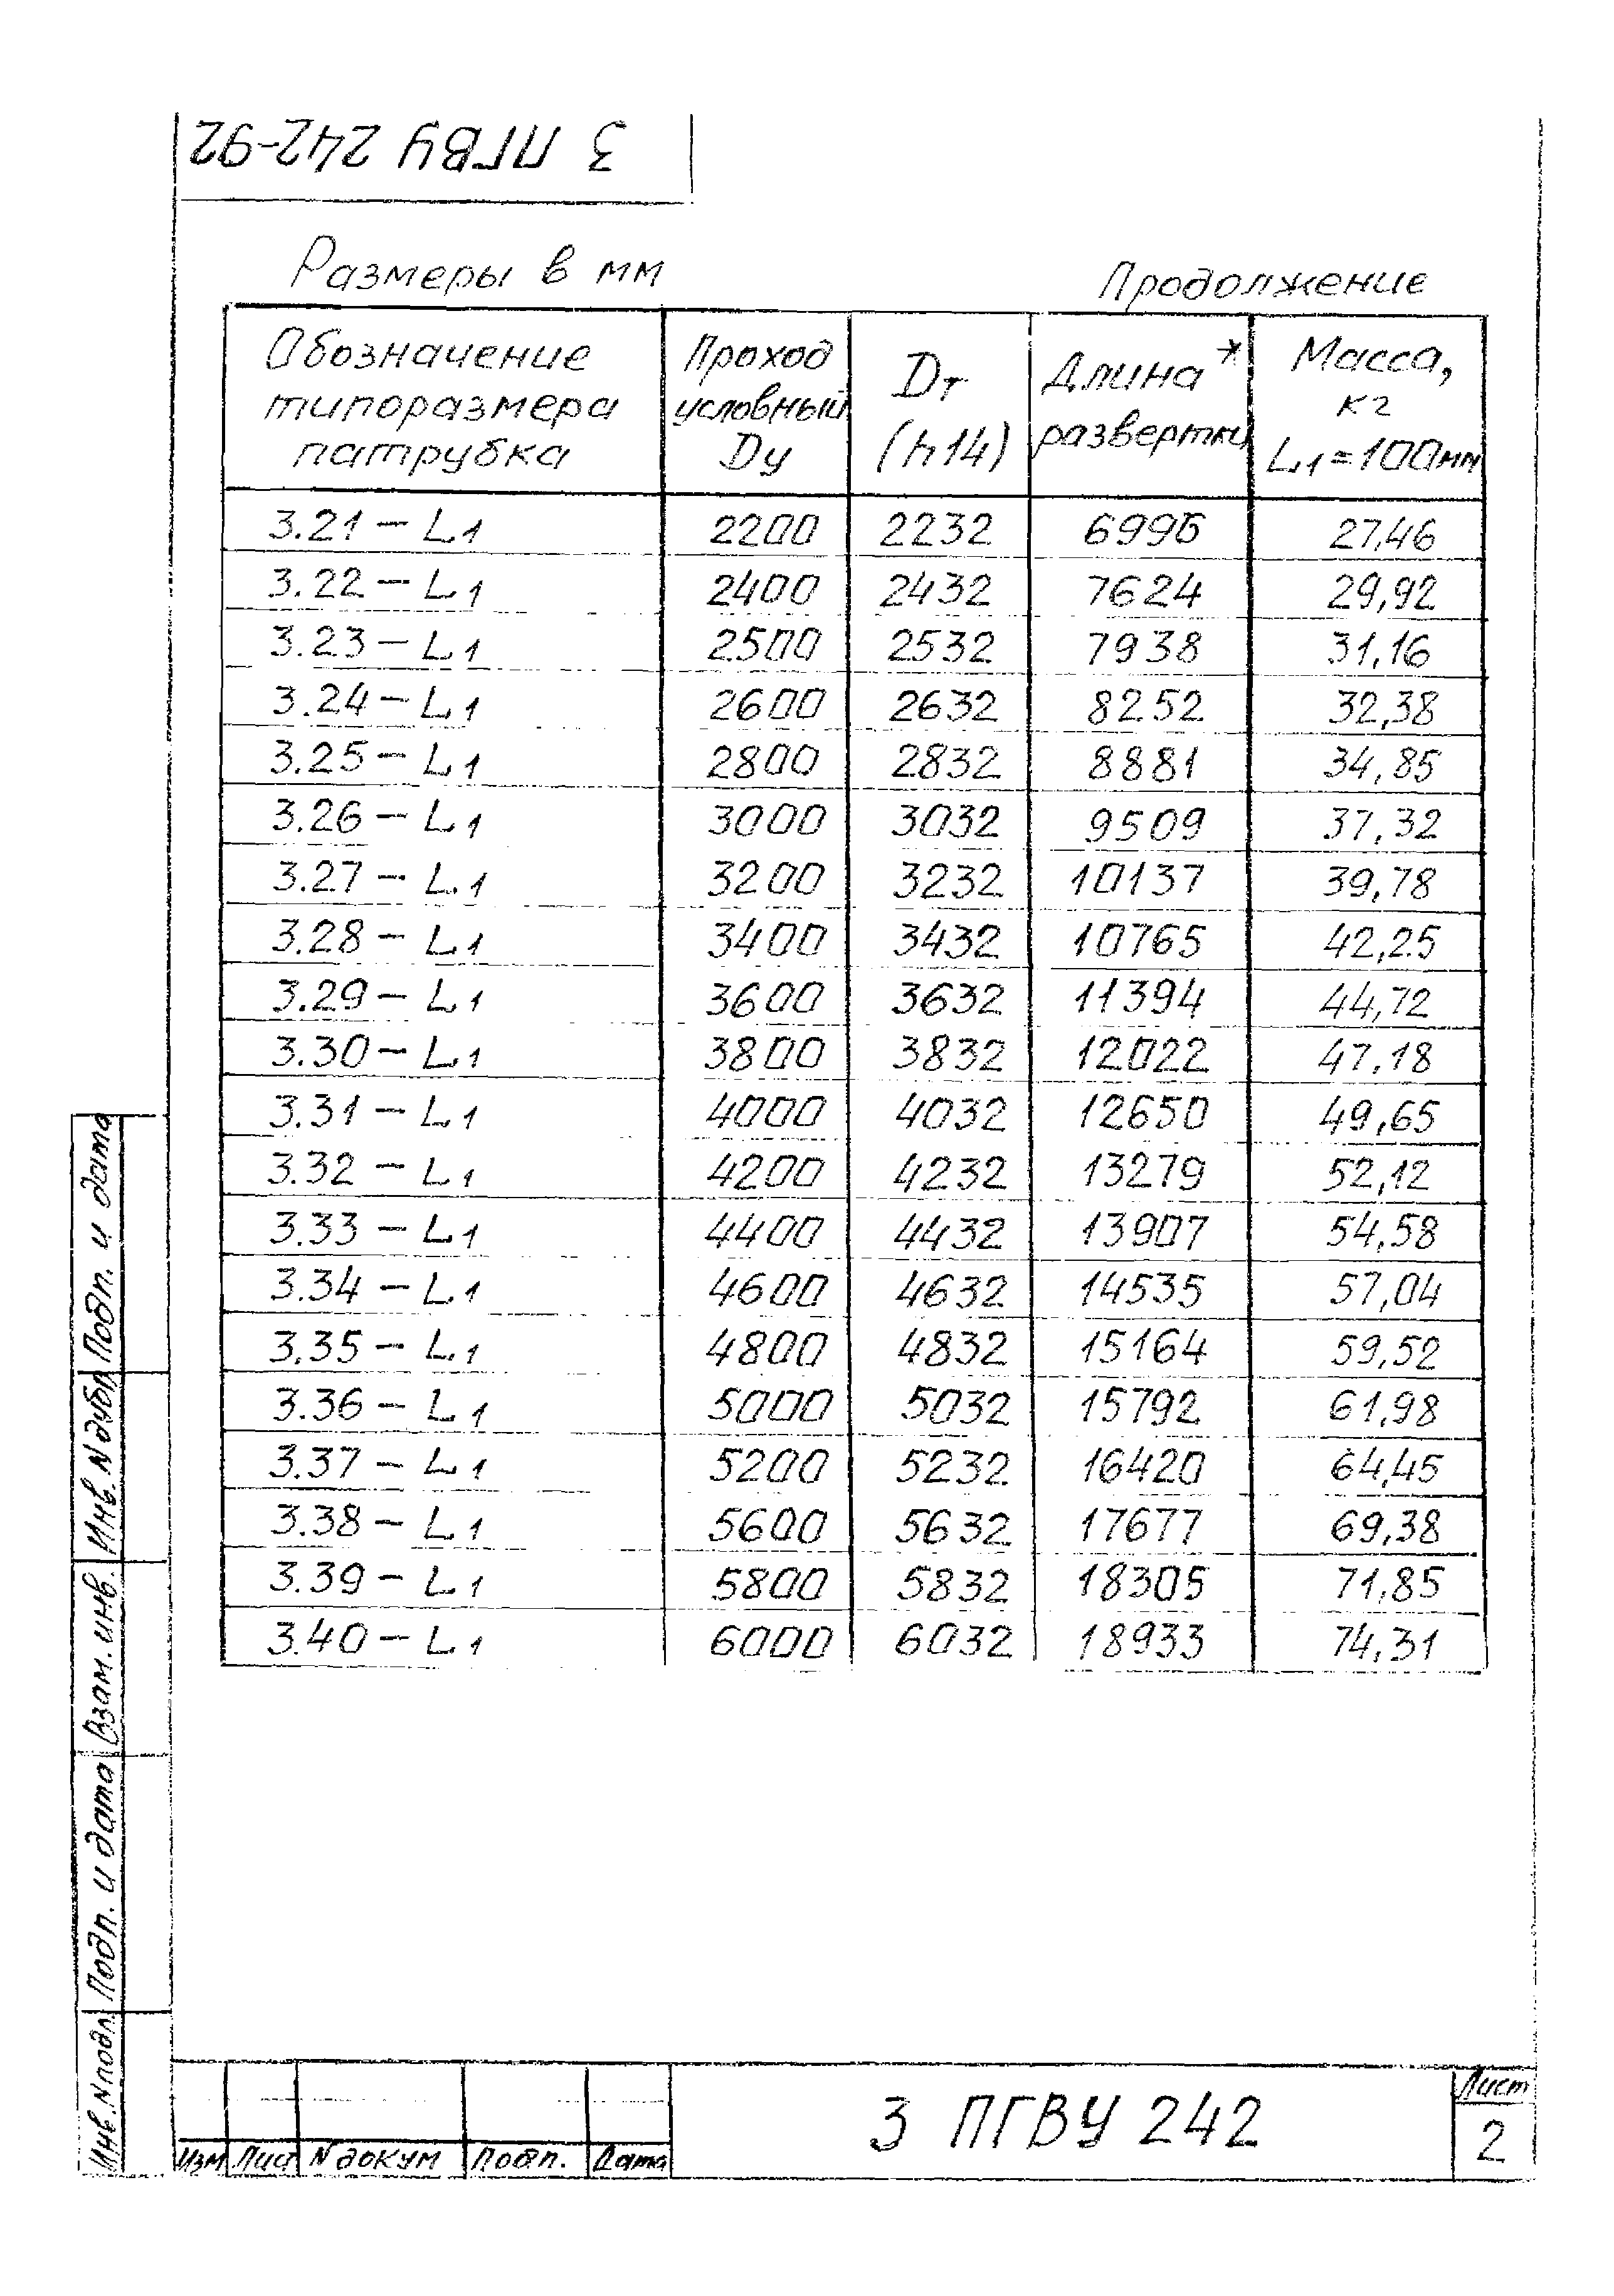 3 ПГВУ 242-92
Размеры в мм
Продолжение
Обозначение типоразмера патрубка | Проход условный Dу | Dт (h14) | Длина* развертки | Масса, кг L1=100мм
3.21 – L1 | 2200 | 2232 | 6996 | 27,46
3.22 – L1 | 2400 | 2432 | 7624 | 29,92
3.23 – L1 | 2500 | 2532 | 7938 | 31,16
3.24 – L1 | 2600 | 2632 | 8252 | 32,38
3.25 – L1 | 2800 | 2832 | 8881 | 34,85
3.26 – L1 | 3000 | 3032 | 9509 | 37,32
3.27 – L1 | 3200 | 3232 | 10137 | 39,78
3.28 – L1 | 3400 | 3432 | 10765 | 42,25
3.29 – L1 | 3600 | 3632 | 11394 | 44,72
3.30 – L1 | 3800 | 3832 | 12022 | 47,18
3.31 – L1 | 4000 | 4032 | 12650 | 49,65
3.32 – L1 | 4200 | 4232 | 13279 | 52,12
3.33 – L1 | 4400 | 4432 | 13907 | 54,58
3.34 – L1 | 4600 | 4632 | 14535 | 57,04
3.35 – L1 | 4800 | 4832 | 15164 | 59,52
3.36 – L1 | 5000 | 5032 | 15792 | 61,98
3.37 – L1 | 5200 | 5232 | 16420 | 64,45
3.38 – L1 | 5600 | 5632 | 17677 | 69,38
3.39 – L1 | 5800 | 5832 | 18305 | 71,85
3.40 – L1 | 6000 | 6032 | 18933 | 74,31
Подп. и дата
Инв. N дубл
Взам. инв.
Подп. и дата
Инв. N подл
Изм Лист N докум Подп. Дата
3 ПГВУ 242
Лист
2